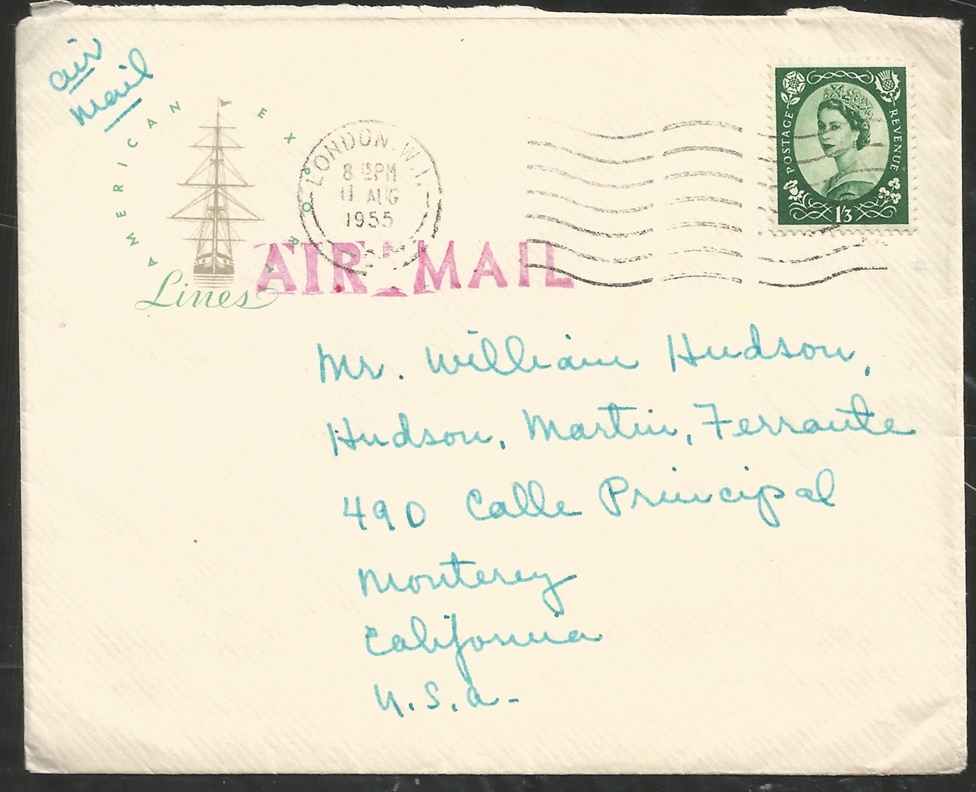 air
mail
AMERICAN EXPORT
Lines
LONDON. W.1.
8 15 PM
11 AUG
1955
AIR MAIL
POSTAGE REVENUE
1/3
Mr. William Hudson,
Hudson, Martin, Ferrante
490 Calle Principal
Monterey
California
U.S.A.